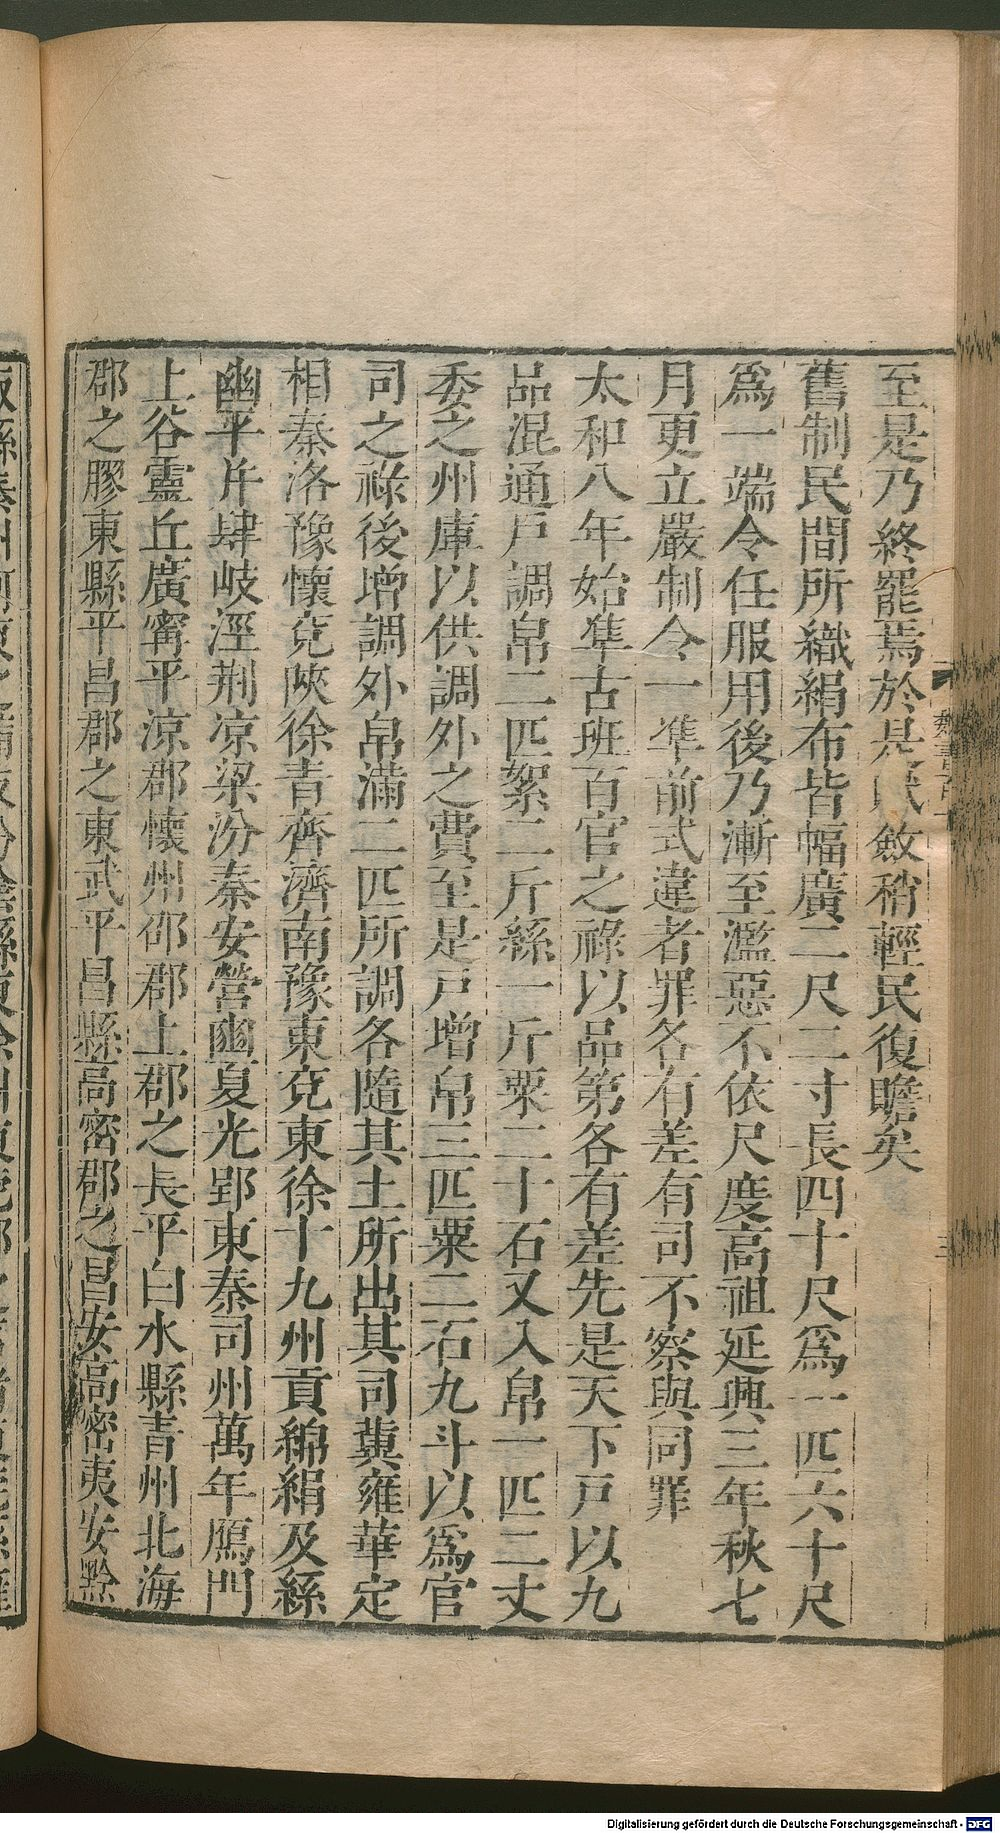 至是乃終罷焉於是民斂稍輕民復贍矣
舊制民間所織絹布皆幅廣二尺二寸長四十尺爲一匹六十尺
爲一端令任服用後乃漸至濫惡不依尺度高祖延興三年秋七
月更立嚴制令一準前式違者罪各有差有司不察與同罪
太和八年始準古班百官之祿以品第各有差先是天下戸以九
品混通戸調帛二匹絮二斤絲一斤粟二十石又入帛一匹二丈
委之州庫以供調外之費至是戸增帛三匹粟二石九斗以爲官
司之祿後增調外帛滿二匹所調各隨其土所出其司冀雍華定
相秦洛豫懷兗陝徐青齊濟南豫東兗東徐十九州貢綿絹及絲
幽平并肆岐涇荆凉梁汾秦安營豳夏光郢東秦司州萬年鴈門
上谷靈丘廣甯平涼郡懷州邵郡上郡之長平白水縣青州北海
郡之膠東縣平昌郡之東武平昌縣高密郡之昌安高密夷安黔
魏書
三
Digitalisierung gefördert durch die Deutsche Forschungsgemeinschaft - DFG